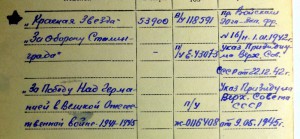 "Красная Звезда" 53900 п/у 118591
"За Оборону Сталин-
града" п/у Е-43075 Указ Президиу
ма Верх. Сов.
СССР от 22.12.42 г.
"За Победу Над Герма-
нией в Великой Отечес-
твенной Войне 1941-1945 п/у
ж-0116408
Указ Президиума
Верх. Совета
СССР
от 9.05.1945г.